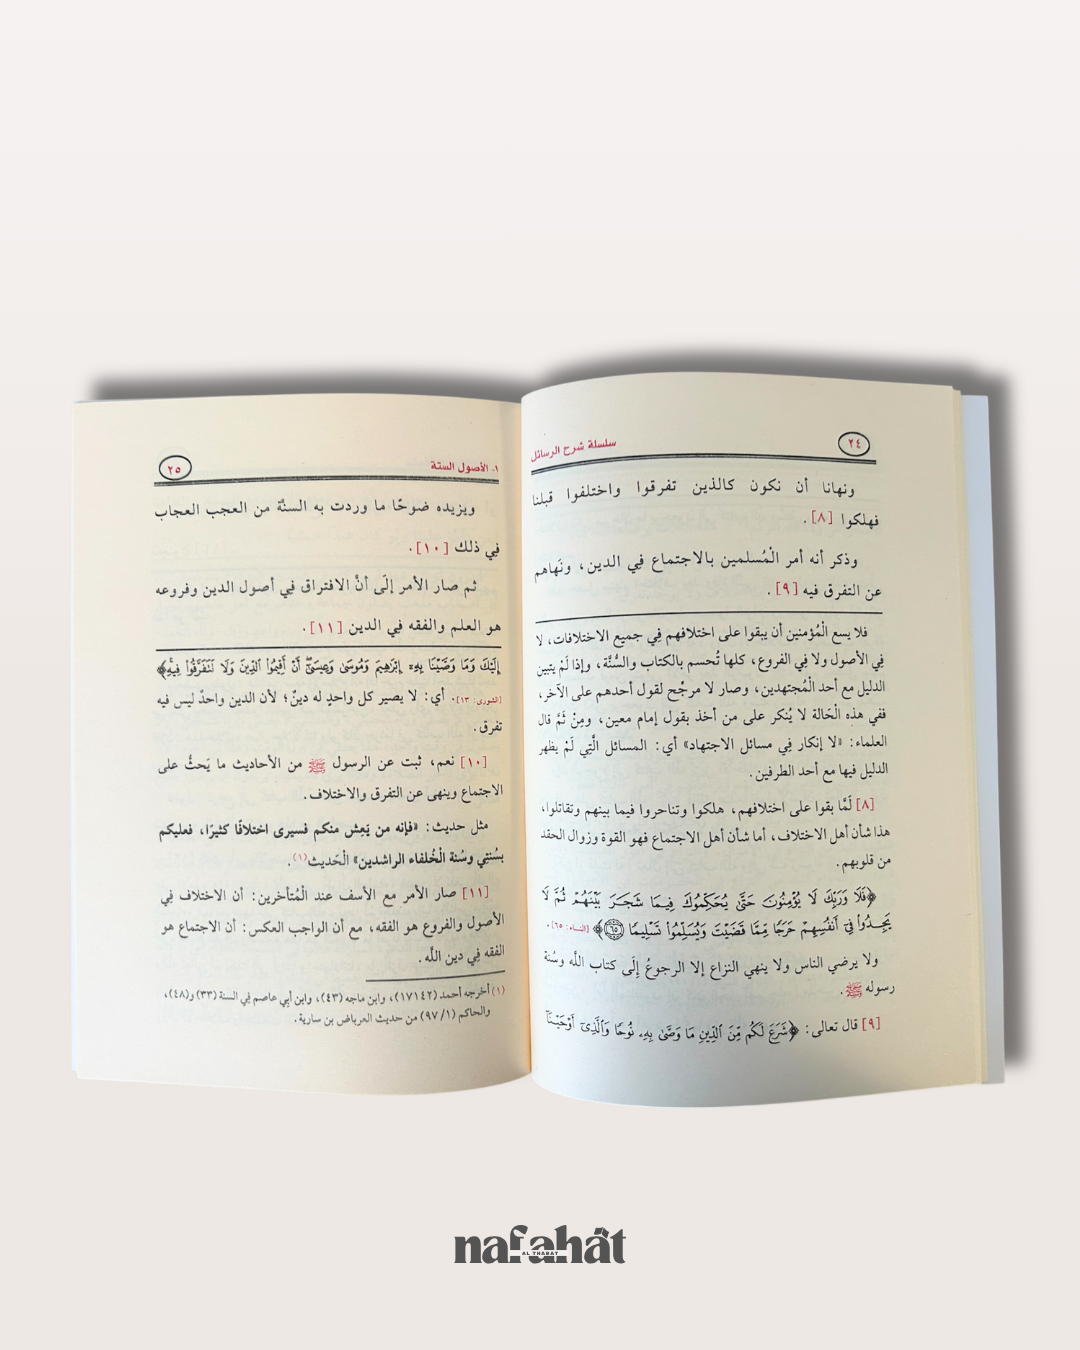 سلسلة شرح الرسائل
٢٤
ونهانا أن نكون كالذين تفرقوا واختلفوا قبلنا
فهلكوا [٨].
وذكر أنه أمر الْمُسلمين بالاجتماع فِي الدين، ونَهاهم
عن التفرق فيه [٩].
فلا يسع الْمُؤمنين أن يبقوا على اختلافهم فِي جميع الاختلافات، لا
فِي الأصول ولا فِي الفروع، كلها تُحسم بالكتاب والسُّنَّة، وإذا لَمْ يتبين
الدليل مع أحد الْمُجتهدين، وصار لا مرجِّح لقول أحدهم على الآخر،
ففي هذه الْحَالة لا يُنكر على من أخذ بقول إمام معين، ومِنْ ثَمَّ قال
العلماء: «لا إنكار فِي مسائل الاجتهاد» أي: المسائل الَّتِي لَمْ يظهر
الدليل فيها مع أحد الطرفين.
[٨] لَمَّا بقوا على اختلافهم، هلكوا وتناحروا فيما بينهم وتقاتلوا،
هذا شأن أهل الاختلاف، أما شأن أهل الاجتماع فهو القوة وزوال الحقد
من قلوبهم.
﴿فَلَا وَرَبِّكَ لَا يُؤْمِنُونَ حَتَّىٰ يُحَكِّمُوكَ فِيمَا شَجَرَ بَيْنَهُمْ ثُمَّ لَا
يَجِدُواْ فِىٓ أَنفُسِهِمْ حَرَجًا مِّمَّا قَضَيْتَ وَيُسَلِّمُواْ تَسْلِيمًا ٦٥﴾ [النساء: ٦٥].
ولا يرضي الناس ولا ينهي النزاع إلا الرجوعُ إلَى كتاب اللَّه وسُنة
رسوله ﷺ.
[٩] قال تعالى: ﴿شَرَعَ لَكُم مِّنَ ٱلدِّينِ مَا وَصَّىٰ بِهِۦ نُوحًا وَٱلَّذِىٓ أَوْحَيْنَآ
١- الأصول الستة
٢٥
ويزيده ضوحًا ما وردت به السنَّة من العجب العجاب
فِي ذلك [١٠].
ثم صار الأمر إلَى أنَّ الافتراق فِي أصول الدين وفروعه
هو العلم والفقه فِي الدين [١١].
إِلَيْكَ وَمَا وَصَّيْنَا بِهِۦٓ إِبْرَٰهِيمَ وَمُوسَىٰ وَعِيسَىٰٓ أَنْ أَقِيمُواْ ٱلدِّينَ وَلَا تَتَفَرَّقُواْ فِيهِ﴾
[الشورى: ١٣]. أي: لا يصير كل واحدٍ له دينٌ؛ لأن الدين واحدٌ ليس فيه
تفرق.
[١٠] نعم، ثبت عن الرسول ﷺ من الأحاديث ما يَحثُّ على
الاجتماع وينهى عن التفرق والاختلاف.
مثل حديث: «فإنه من يَعِش منكم فسيرى اختلافًا كثيرًا، فعليكم
بسُنتِي وسُنة الْخُلفاء الراشدين» الْحَديث(١).
[١١] صار الأمر مع الأسف عند الْمُتأخرين: أن الاختلاف فِي
الأصول والفروع هو الفقه، مع أن الواجب العكس: أن الاجتماع هو
الفقه فِي دين اللَّه.
(١) أخرجه أحمد (١٧١٤٢)، وابن ماجه (٤٣)، وابن أبِي عاصم فِي السنة (٣٣) و(٤٨)،
والحاكم (١/ ٩٧) من حديث العرباض بن سارية.
nafahât
AL THABAT